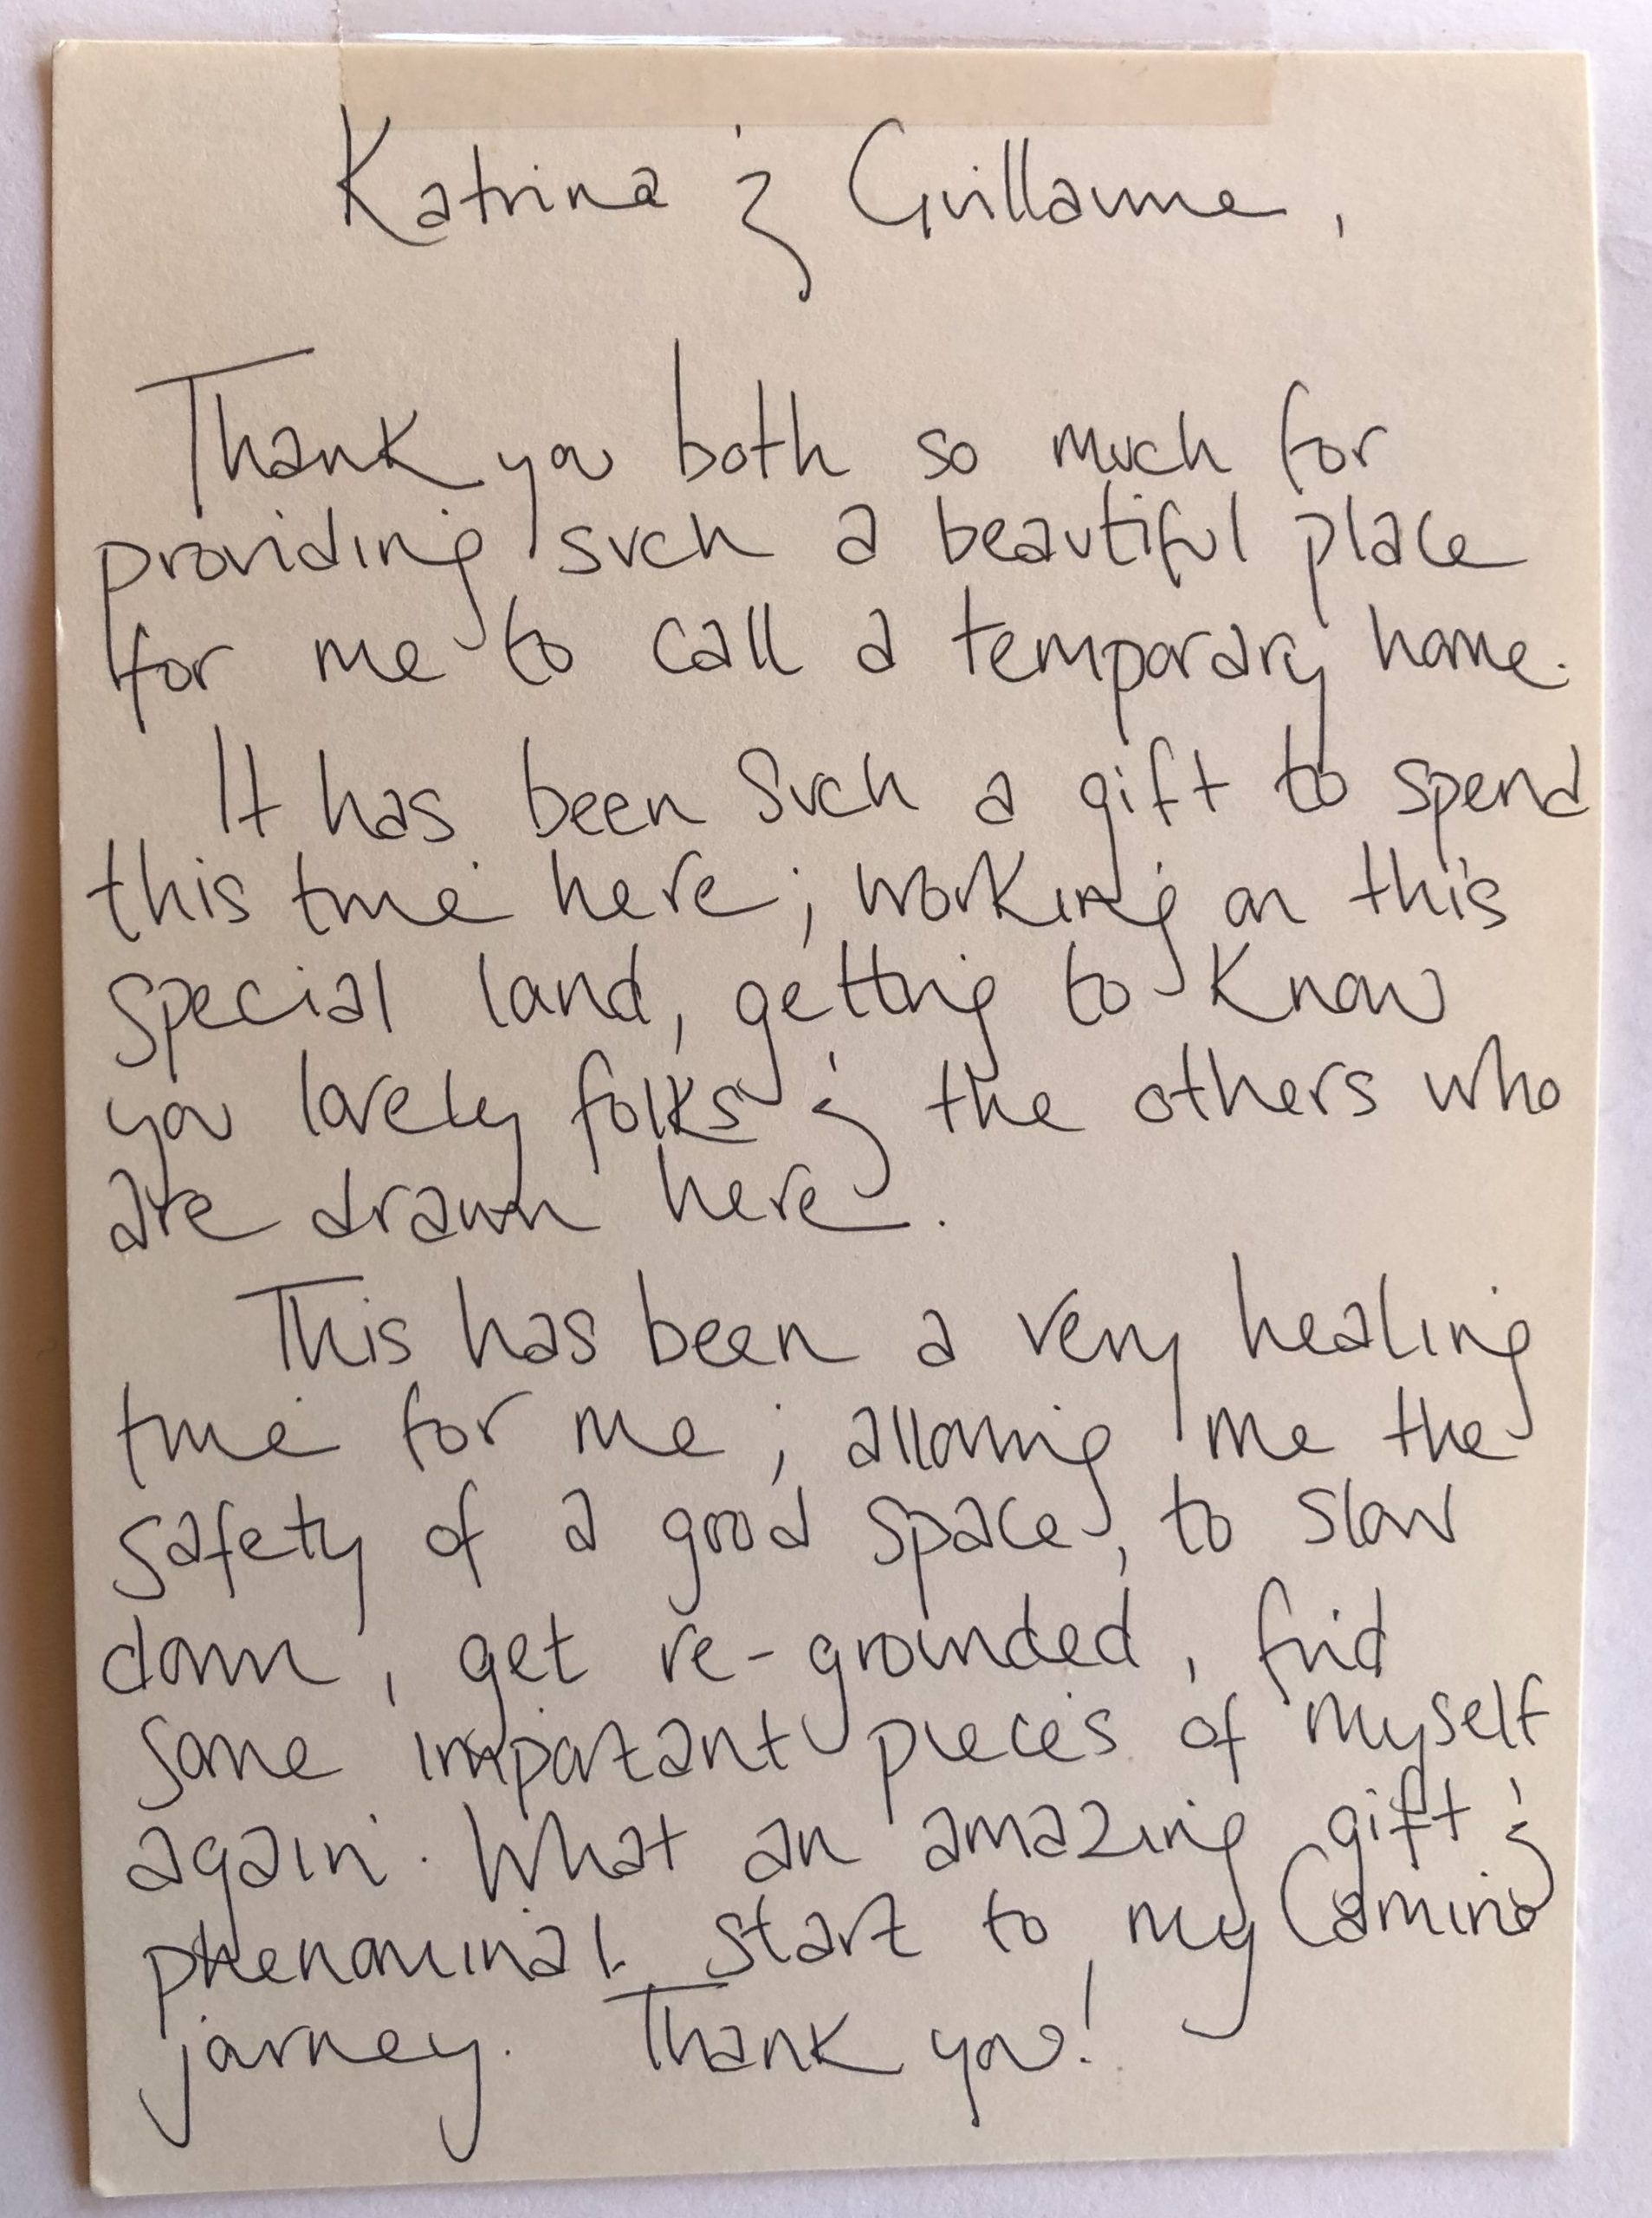 Katrina & Guillaume,
Thank you both so much for
providing such a beautiful place
for me to call a temporary home.
It has been such a gift to spend
this time here; working on this
special land, getting to know
you lovely folks & the others who
are drawn here.
This has been a very healing
time for me; allowing me the
safety of a good space, to slow
down, get re-grounded, find
some important pieces of myself
again. What an amazing gift &
phenominal start to my Camino
journey. Thank you!